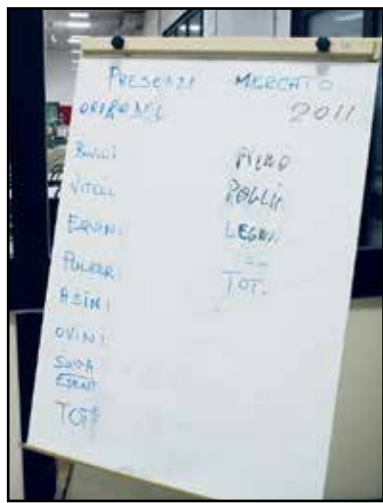 PRESENZE MERCATO
2011
Bovini
VITELLI
EQUINI
PULEDRI
ASINI
OVINI
TOT.
FIENO
PAGLIA
LEGNA
TOT.